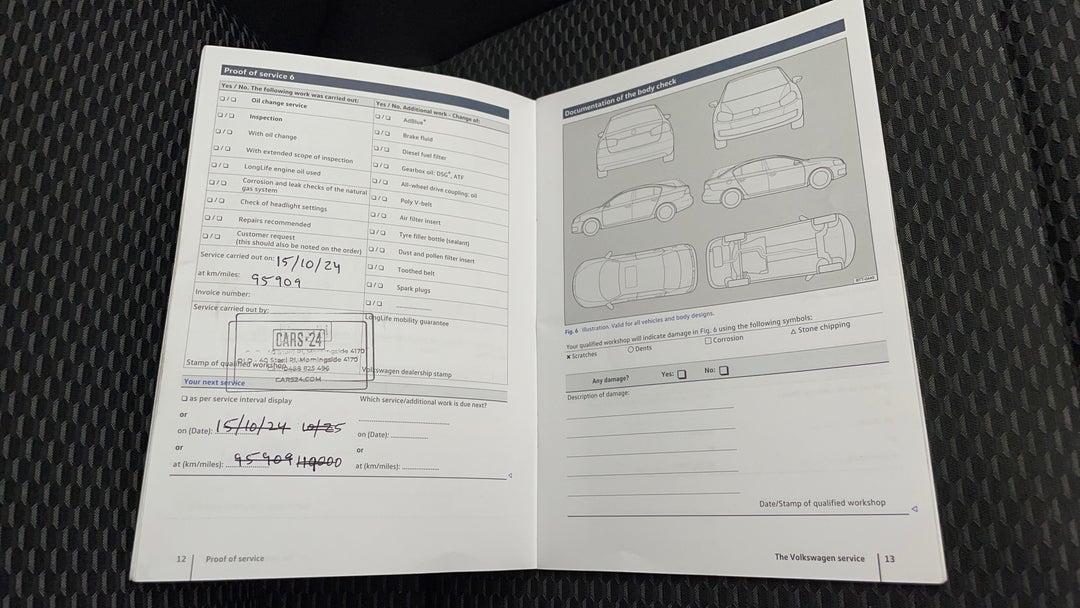 Proof of service 6
Yes / No. The following work was carried out:
❏ / ❏ Oil change service
❏ / ❏ Inspection
❏ / ❏ With oil change
❏ / ❏ With extended scope of inspection
❏ / ❏ LongLife engine oil used
❏ / ❏ Corrosion and leak checks of the natural
gas system
❏ / ❏ Check of headlight settings
❏ / ❏ Repairs recommended
❏ / ❏ Customer request
(this should also be noted on the order)
Service carried out on: 15/10/24
at km/miles: 95909
Invoice number:
Service carried out by:
CARS24
QLD - 40 Steel Pl, Morningside 4170
CARS24.COM
Stamp of qualified workshop
Yes / No. Additional work - Change of:
❏ / ❏ AdBlue®
❏ / ❏ Brake fluid
❏ / ❏ Diesel fuel filter
❏ / ❏ Gearbox oil: DSG®, ATF
❏ / ❏ All-wheel drive coupling: oil
❏ / ❏ Poly V-belt
❏ / ❏ Air filter insert
❏ / ❏ Tyre filler bottle (sealant)
❏ / ❏ Dust and pollen filter insert
❏ / ❏ Toothed belt
❏ / ❏ Spark plugs
❏ / ❏
LongLife mobility guarantee
Volkswagen dealership stamp
Your next service
❏ as per service interval display
or
on (Date): 15/10/24 10/25
or
at (km/miles): 95909 110000
Which service/additional work is due next?
on (Date):
or
at (km/miles):
12 Proof of service
Documentation of the body check
Fig. 6 Illustration. Valid for all vehicles and body designs.
Your qualified workshop will indicate damage in Fig. 6 using the following symbols:
✖ Scratches ○ Dents □ Corrosion △ Stone chipping
Any damage? Yes: ❏ No: ❏
Description of damage:
Date/Stamp of qualified workshop
The Volkswagen service 13